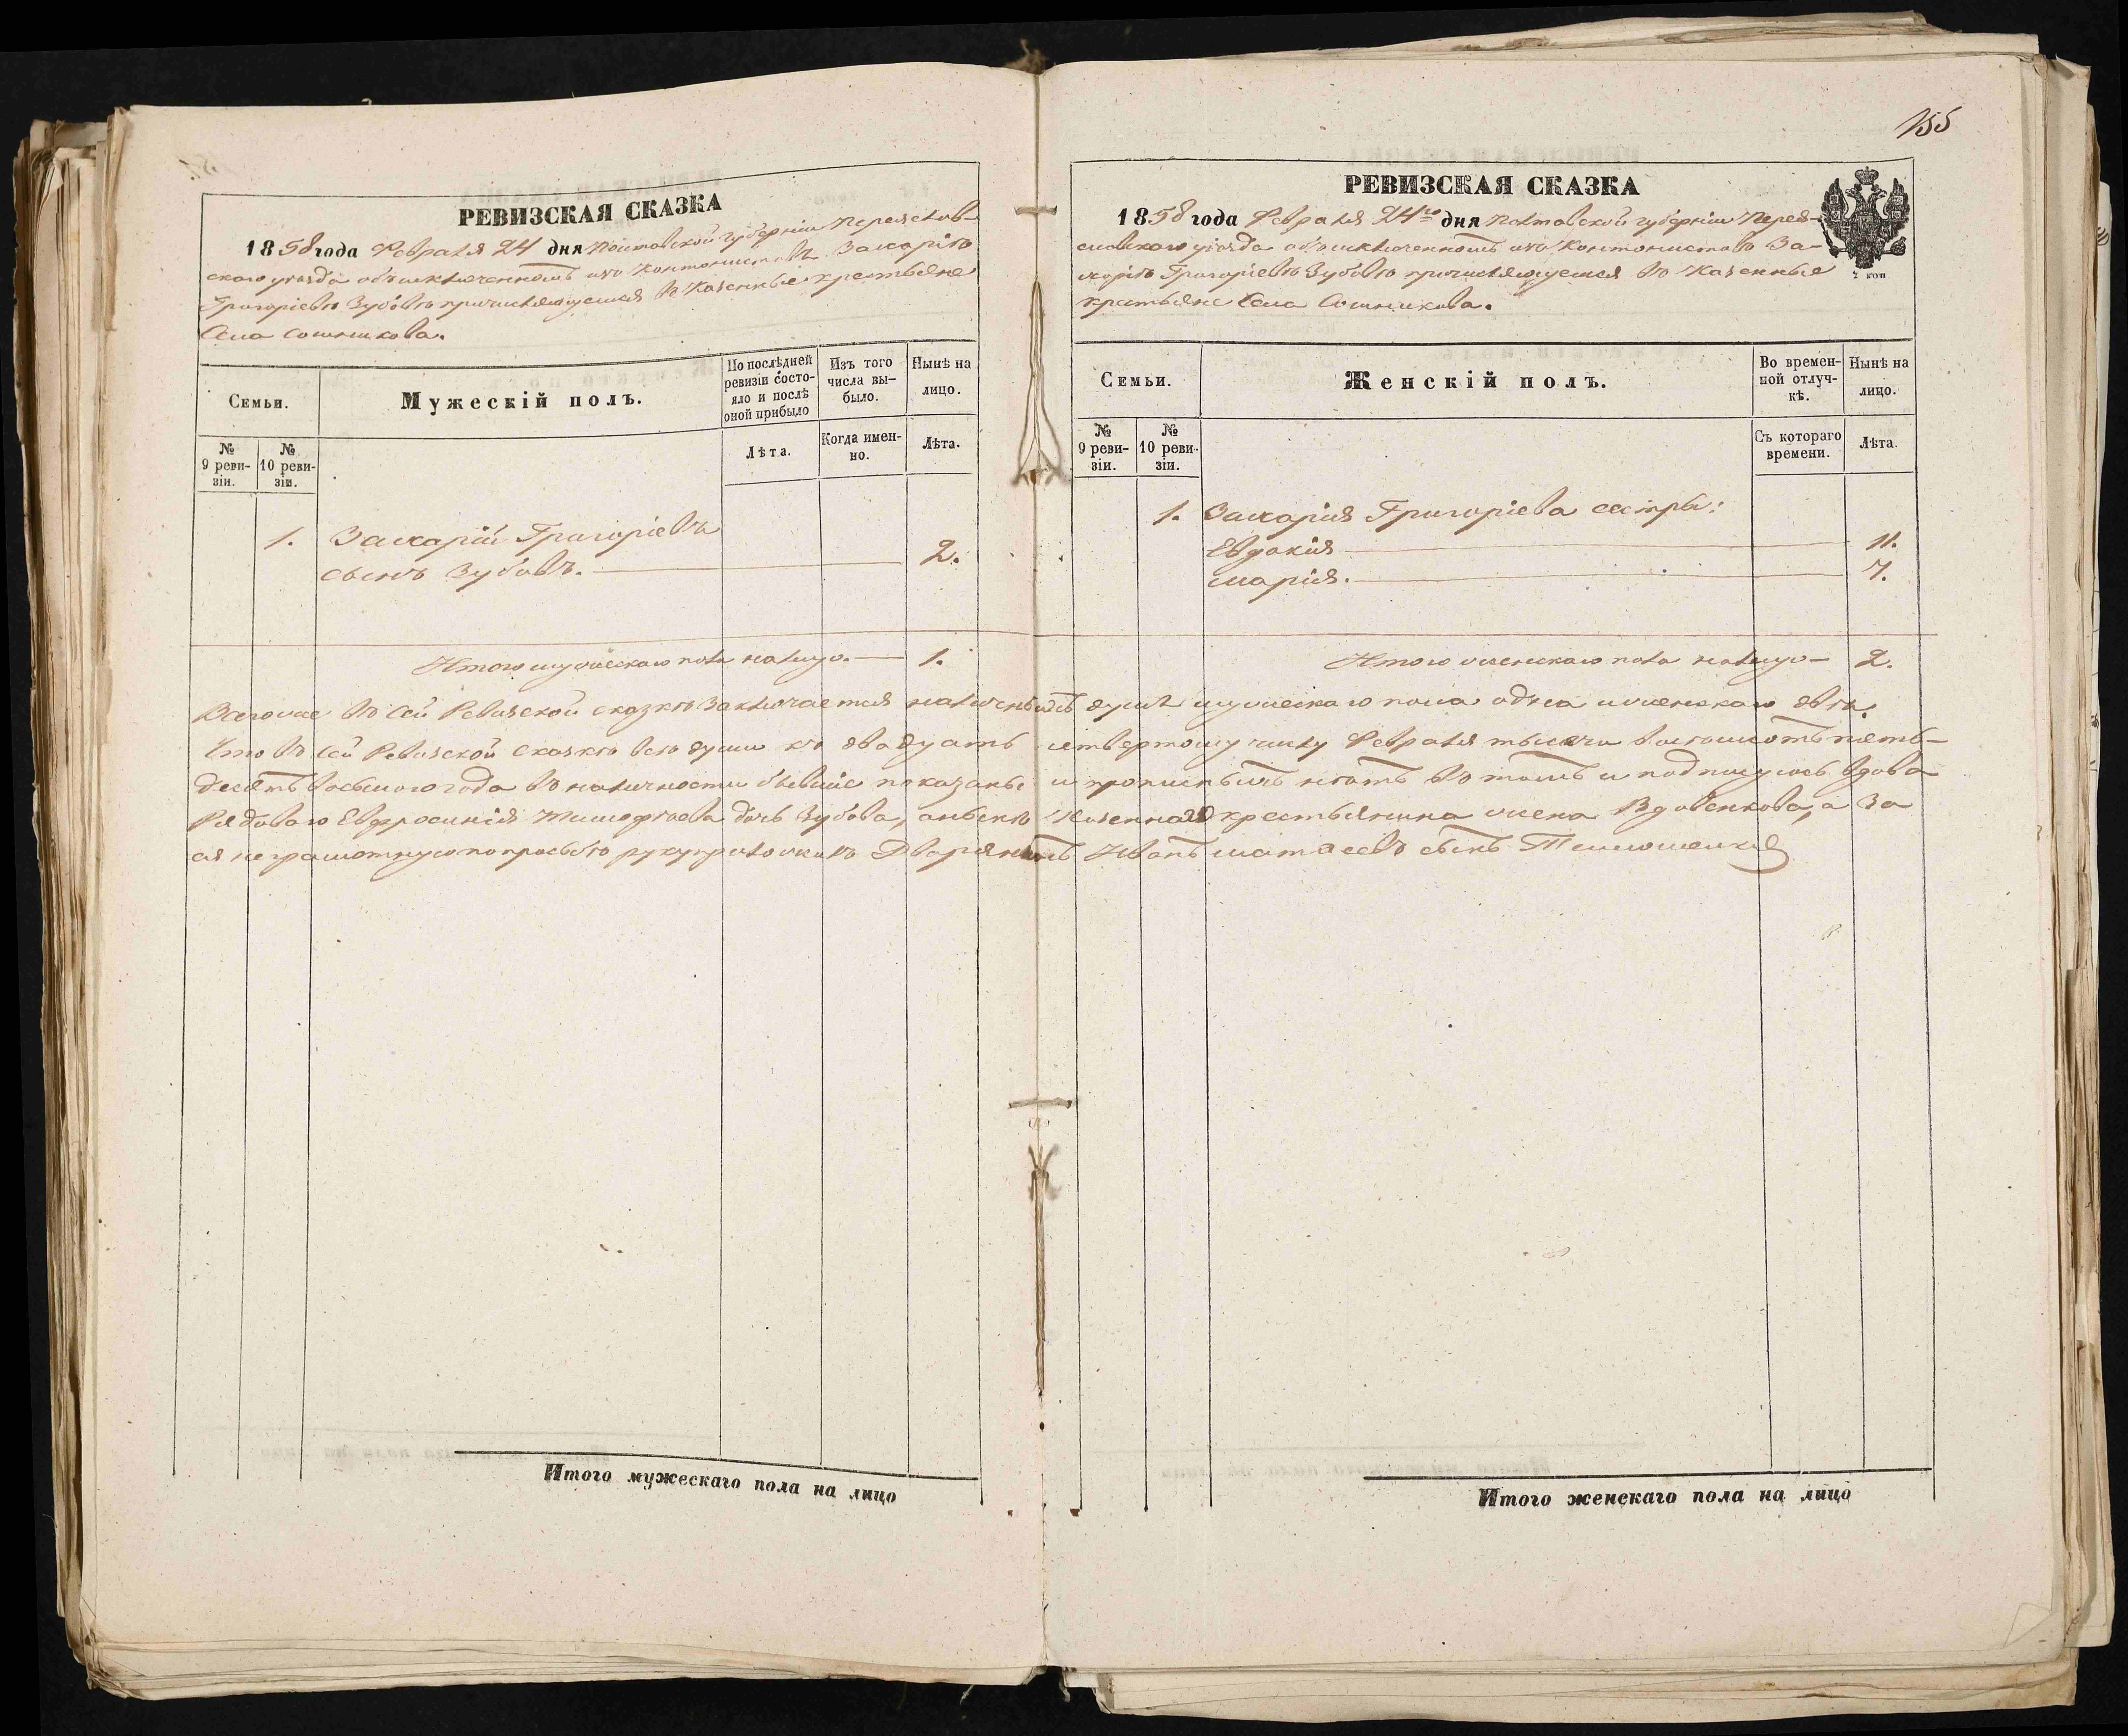 РЕВИЗСКАЯ СКАЗКА
1858 года Февраля 24 дня Полтавской губерніи Переяслав-
скаго уѣзда объ исключенномъ изъ Кантонистовъ Захаріѣ
Григорьевѣ Зубовѣ причисляющемся въ Казенные крестьяне
Села Сошникова.
Семьи.
Мужескій полъ.
По послѣдней ревизіи состо-
яло и послѣ оной прибыло
Изъ того числа вы-
было.
Нынѣ на лицо.
№ 9 реви-
зіи.
№ 10 реви-
зіи.
Лѣта.
Когда имен-
но.
Лѣта.
1. Захарій Григоріевъ
сынъ Зубовъ. 2.
Итого мужескаго пола налицо. 1.
155
РЕВИЗСКАЯ СКАЗКА
1858 года Февраля 24го дня Полтавской губерніи Перея-
славскаго уѣзда объ исключенномъ изъ Кантонистовъ За-
харіѣ Григоріевѣ Зубовѣ причисляющемся въ Казенные
крестьяне Села Сошникова.
2 коп
Семьи.
Женскій полъ.
Во времен-
ной отлуч-
кѣ.
Нынѣ на лицо.
№ 9 реви-
зіи.
№ 10 реви-
зіи.
Съ котораго времени.
Лѣта.
1. Захарія Григоріева сестры:
Евдокія 11.
Марія. 7.
Итого женскаго пола налицо 2.
Всего же въ сей Ревизской сказкѣ заключается наличныхъ душъ мужескаго пола одна и женскаго двѣ.
Что въ сей Ревизской сказкѣ всѣ души къ двадцать четвертому числу Февраля тысяча восемсотъ пять-
десятъ восьмого года въ наличности бывшіе показаны и прописныхъ нѣтъ въ томъ и подписуюсь вдова
Рядоваго Евфросинія Тимофѣева дочь Зубова, а нынѣ Казеннаго крестьянина жена Вдовенкова, а за
ея неграмотную по просьбѣ рукуприложилъ Дворянинъ Иванъ Матвеевъ сынъ Тимошенко
Итого мужескаго пола на лицо
Итого женскаго пола на лицо